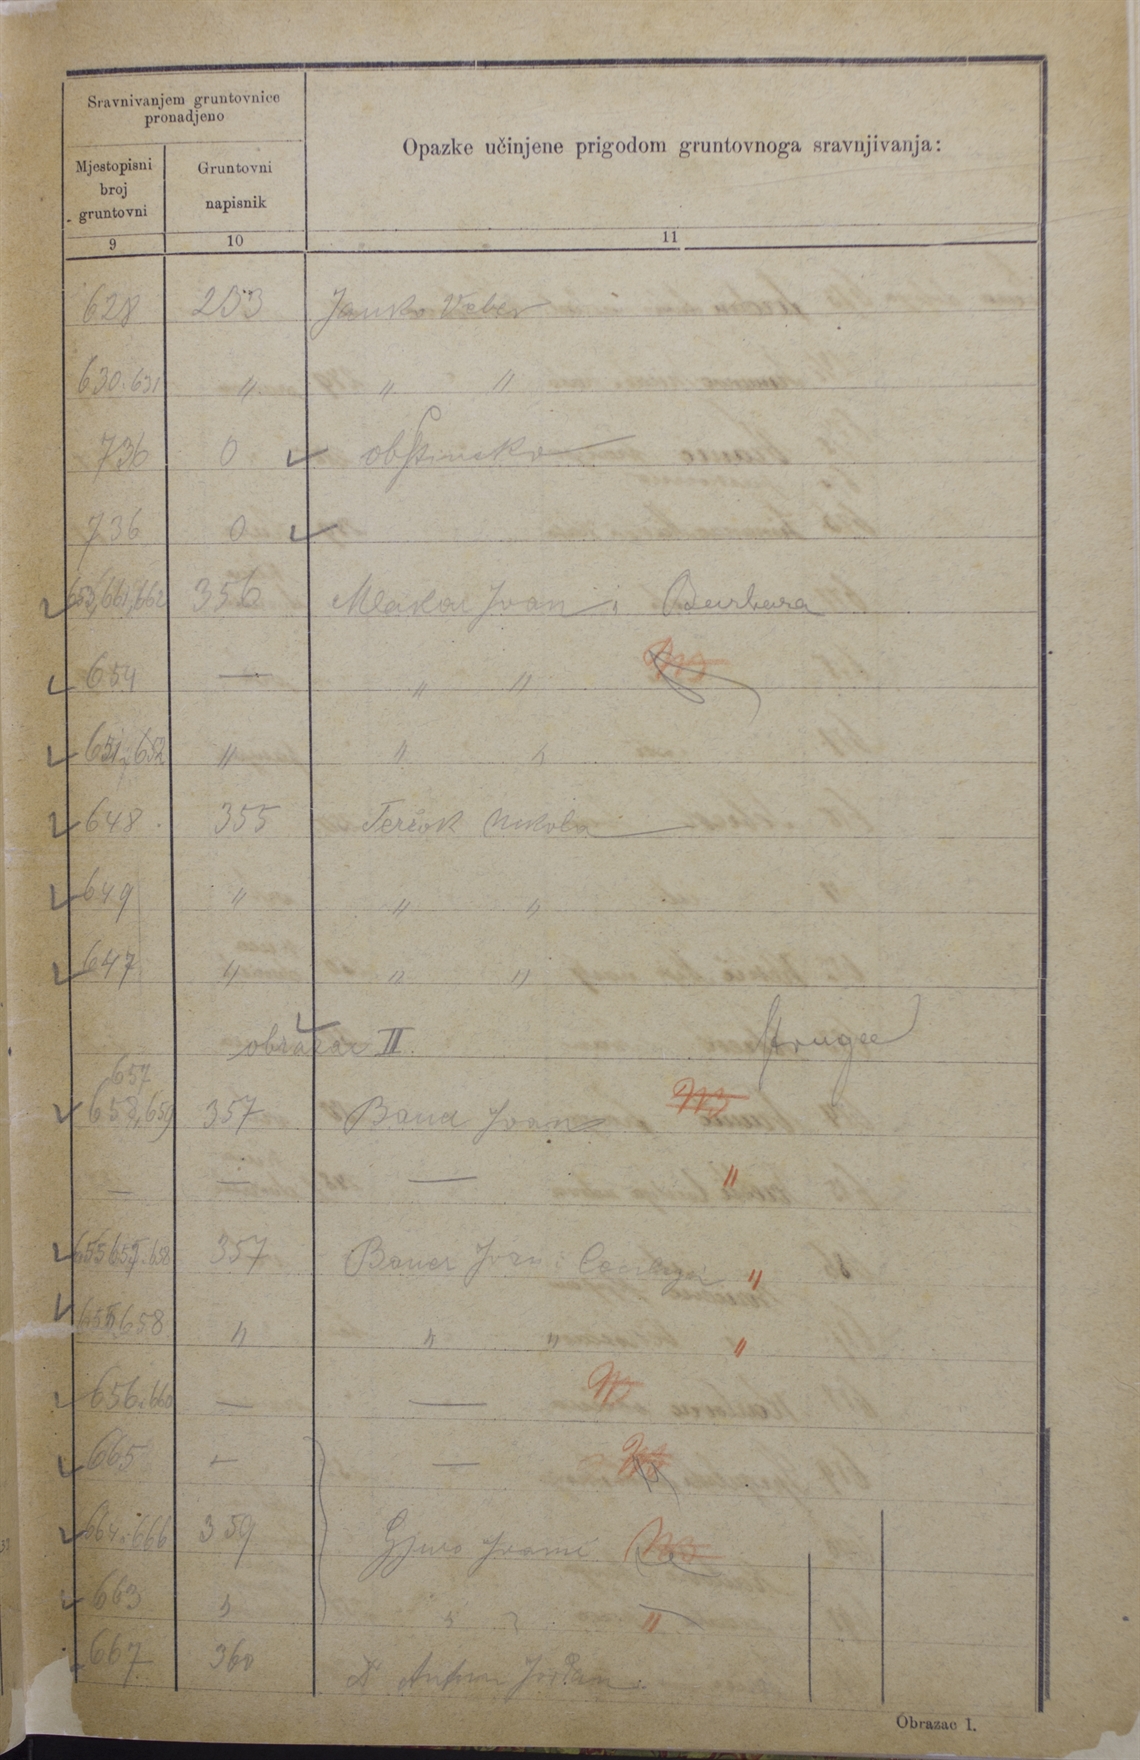 Sravnivanjem gruntovnice
pronadjeno
Opazke učinjene prigodom gruntovnoga sravnjivanja:
Mjestopisni
broj
gruntovni
Gruntovni
napisnik
9 10 11
628 253 Janko Weber
630. 631 " " "
736 0 obštinsko
736 0
653, 661, 662 356 Mlakar Ivan i Barbara
654 — " "
651, 652 " " "
648 355 Teršok Nikola
649 " " "
647 " " "
obrazac II.
657
658, 659 357 Bauer Ivan
— — — "
357 Bauer Ivan i "
658 " " " "
656. 660 — —
665 — —
664. 666 359 Gjuro
663 " " " "
667 360 Antun
Obrazac 1.